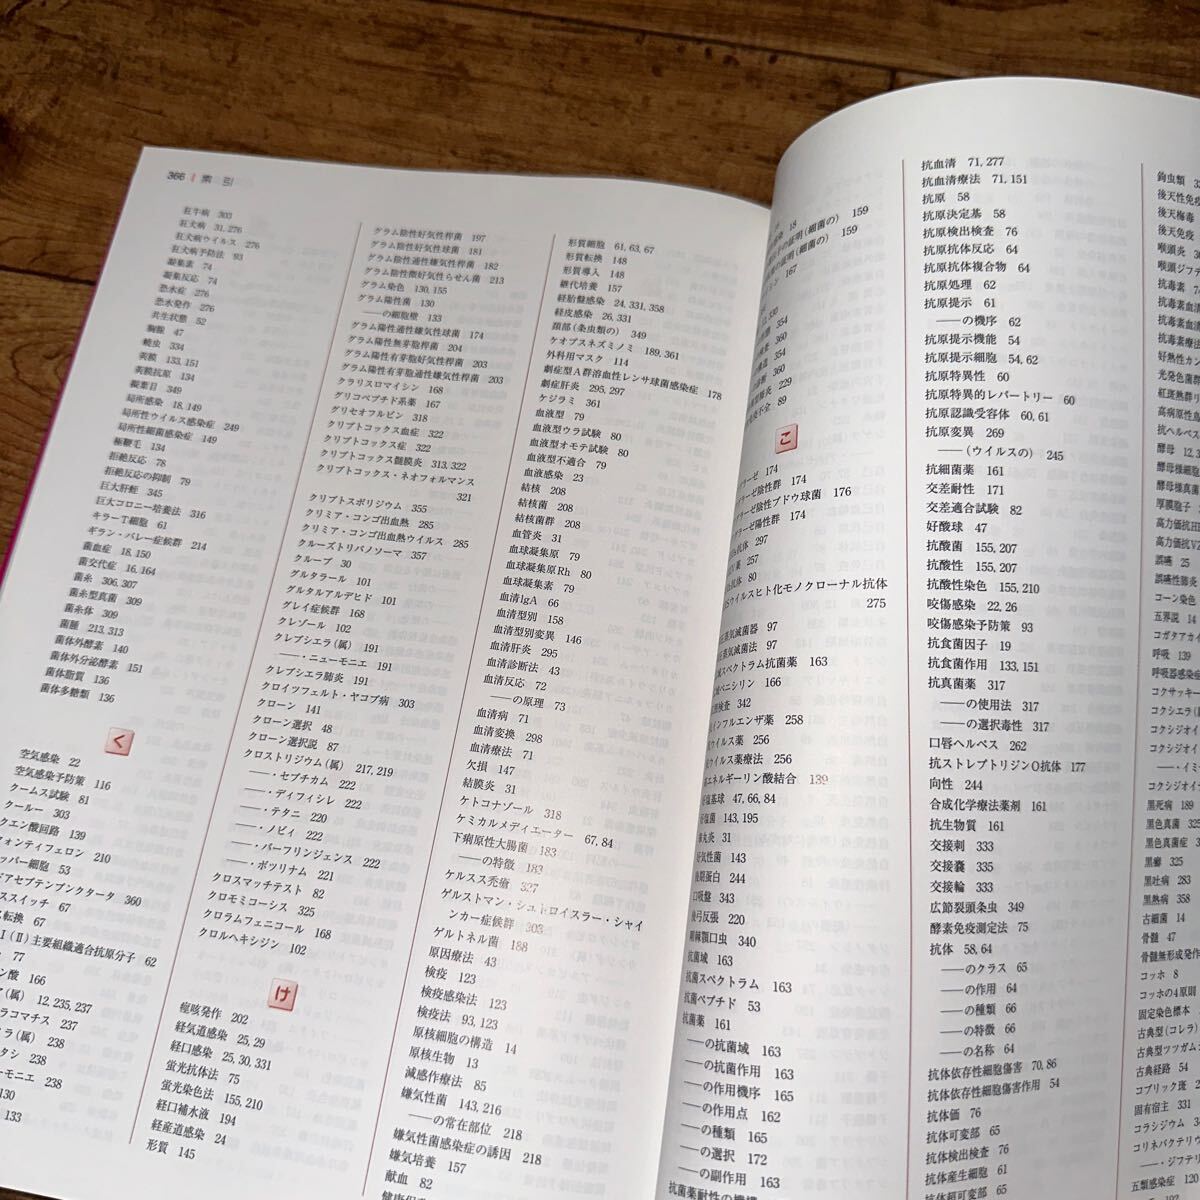 366 索引
狂牛病 303
狂犬病 31, 276
狂犬病ウイルス 276
狂犬病予防法 93
凝集素 74
凝集反応 74
恐水症 276
恐水発作 276
共生状態 52
胸腺 47
蟯虫 334
莢膜 133, 151
莢膜抗原 134
擬葉目 349
局所感染 18, 149
局所性ウイルス感染症 249
局所性細菌感染症 149
極鞭毛 134
拒絶反応 78
拒絶反応の抑制 79
巨大肝蛭 345
巨大コロニー培養法 316
キラーT細胞 61
ギラン・バレー症候群 214
菌血症 18, 150
菌交代症 16, 164
菌糸 306, 307
菌糸型真菌 309
菌糸体 309
菌腫 213, 313
菌体外酵素 140
菌体外分泌酵素 151
菌体脂質 136
菌体多糖類 136
く
空気感染 22
空気感染予防策 116
クームス試験 81
クールー 303
クエン酸回路 139
フォンティフェロン 210
ッパー細胞 53
ドアセプテンプンクタータ 360
ススイッチ 67
ス転換 67
I(Ⅱ)主要組織適合抗原分子 62
77
ン酸 166
ア(属) 12, 235, 237
ラコマチス 237
ラ(属) 238
タシ 238
ーモニエ 238
130
133
グラム陰性好気性桿菌 197
グラム陰性好気性球菌 181
グラム陰性通性嫌気性桿菌 182
グラム陰性微好気性らせん菌 213
グラム染色 130, 155
グラム陽性菌 130
――の細胞壁 133
グラム陽性通性嫌気性球菌 174
グラム陽性無芽胞桿菌 204
グラム陽性有芽胞好気性桿菌 203
グラム陽性有芽胞通性嫌気性桿菌 203
クラリスロマイシン 168
グリコペプチド系薬 167
グリセオフルビン 318
クリプトコックス血症 322
クリプトコックス症 322
クリプトコックス髄膜炎 313, 322
クリプトコックス・ネオフォルマンス
321
クリプトスポリジウム 355
クリミア・コンゴ出血熱 285
クリミア・コンゴ出血熱ウイルス 285
クルーズトリパノソーマ 357
クループ 30
グルタラール 101
グルタルアルデヒド 101
グレイ症候群 168
クレゾール 102
クレブシエラ(属) 191
――・ニューモニエ 191
クレブシエラ肺炎 191
クロイツフェルト・ヤコブ病 303
クローン 141
クローン選択 48
クローン選択説 87
クロストリジウム(属) 217, 219
――・セプチカム 222
――・ディフィシレ 222
――・テタニ 220
――・ノビィ 222
――・パーフリンジェンス 222
――・ボツリナム 221
クロスマッチテスト 82
クロモミコーシス 325
クロラムフェニコール 168
クロルヘキシジン 102
け
痙咳発作 202
経気道感染 25, 29
経口感染 25, 30, 331
蛍光抗体法 75
蛍光染色法 155, 210
経口補水液 194
経産道感染 24
形質 145
形質細胞 61, 63, 67
形質転換 148
形質導入 148
継代培養 157
経胎盤感染 24, 331, 358
経皮感染 26, 331
頚部(条虫類の) 349
ケオプスネズミノミ 189, 361
外科用マスク 114
劇症型A群溶血性レンサ球菌感染症 178
劇症肝炎 295, 297
ケジラミ 361
血液型 79
血液型ウラ試験 80
血液型オモテ試験 80
血液型不適合 79
血液感染 23
結核 208
結核菌 208
結核菌群 208
血管炎 31
血球凝集原 79
血球凝集原Rh 80
血球凝集素 79
血清IgA 66
血清型別 158
血清型別変異 146
血清肝炎 295
血清診断法 43
血清反応 72
――の原理 73
血清病 71
血清変換 298
血清療法 71
欠損 147
結膜炎 31
ケトコナゾール 318
ケミカルメディエーター 67, 84
下痢原性大腸菌 183
――の特徴 183
ケルスス禿瘡 327
ゲルストマン・シュトロイスラー・シャイ
ンカー症候群 303
ゲルトネル菌 188
原因療法 43
検疫 123
検疫感染法 123
検疫法 93, 123
原核細胞の構造 14
原核生物 13
減感作療法 85
嫌気性菌 143, 216
――の常在部位 218
嫌気性菌感染症の誘因 218
嫌気培養 157
献血 82
18
の証明(細菌の) 159
(細菌の) 159
リン 167
330
354
360
354
360
229
不全 89
こ
ラーゼ 174
グラーゼ陰性群 174
グラーゼ陰性ブドウ球菌 176
グラーゼ陽性群 174
抗体 297
薬 257
抗体 80
Sウイルスヒト化モノクローナル抗体
275
圧蒸気滅菌器 97
圧蒸気滅菌法 97
域スペクトラム抗菌薬 163
域ペニシリン 166
検査 342
インフルエンザ薬 258
ウイルス薬 256
ウイルス薬療法 256
エネルギーリン酸結合 139
好塩基球 47, 66, 84
好塩菌 143, 195
睾丸炎 31
好気性菌 143
後期蛋白 244
口吸盤 343
後弓反張 220
剛棘顎口虫 340
抗菌域 163
抗菌スペクトラム 163
抗菌ペプチド 53
抗菌薬 161
――の抗菌域 163
――の抗菌作用 163
――の作用機序 165
――の作用点 162
――の種類 165
――の選択 172
――の副作用 163
抗菌薬耐性の機構
抗血清 71, 277
抗血清療法 71, 151
抗原 58
抗原決定基 58
抗原検出検査 76
抗原抗体反応 64
抗原抗体複合物 64
抗原処理 62
抗原提示 61
――の機序 62
抗原提示機能 54
抗原提示細胞 54, 62
抗原特異性 60
抗原特異的レパートリー 60
抗原認識受容体 60, 61
抗原変異 269
――(ウイルスの) 245
抗細菌薬 161
交差耐性 171
交差適合試験 82
好酸球 47
抗酸菌 155, 207
抗酸性 155, 207
抗酸性染色 155, 210
咬傷感染 22, 26
咬傷感染予防策 93
抗食菌因子 19
抗食菌作用 133, 151
抗真菌薬 317
――の使用法 317
――の選択毒性 317
口唇ヘルペス 262
抗ストレプトリジンO抗体 177
向性 244
合成化学療法薬剤 161
抗生物質 161
交接刺 333
交接嚢 335
交接輪 333
広節裂頭条虫 349
酵素免疫測定法 75
抗体 58, 64
――のクラス 65
――の作用 64
――の種類 66
――の特徴 66
――の名称 64
抗体依存性細胞傷害 70, 86
抗体依存性細胞傷害作用 54
抗体価 76
抗体可変部 65
抗体検出検査 76
抗体産生細胞 61
抗体超可変部 65
鉤虫類
後天性免疫
後天梅毒
後天免疫
喉頭炎
喉頭ジフテ
抗毒素 7
抗毒素血清
抗毒素療法
好熱性カン
光発色菌群
紅斑熱群リ
高病原性鳥
抗ヘルペス
酵母 12, 3
酵母様細胞
酵母様真菌
厚膜胞子
高力価抗H
高力価抗VZ
誤嚥 25
誤嚥性肺炎
コーン染色
五界説 14
コガタアカイ
呼吸 139
呼吸器感染症
コクサッキー
コクシエラ(属
コクシジオイ
コクシジオイ
――・イミ
コクシジオイデ
黒死病 189
黒色真菌 325
黒色真菌症
黒癬 325
黒吐病 283
黒熱病 358
古細菌 14
骨髄 47
骨髄無形成発作
コッホ 8
コッホの4原則
固定染色標本
古典型(コレラ)
古典型ツツガムシ
古典経路 54
コプリック斑
固有宿主 331
コラシジウム
コリネバクテリウ
――・ジフテリ
五類感染症 120